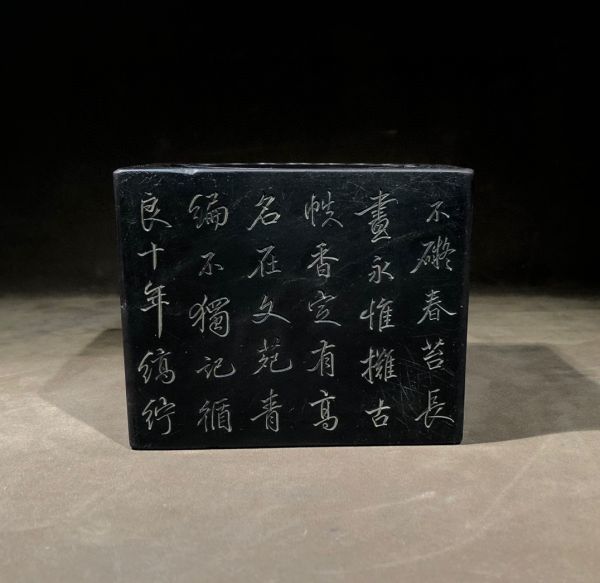 不礙春苔長
晝永惟擁古
帙香定有高
名在文苑青
編不獨記循
良十年縞紵